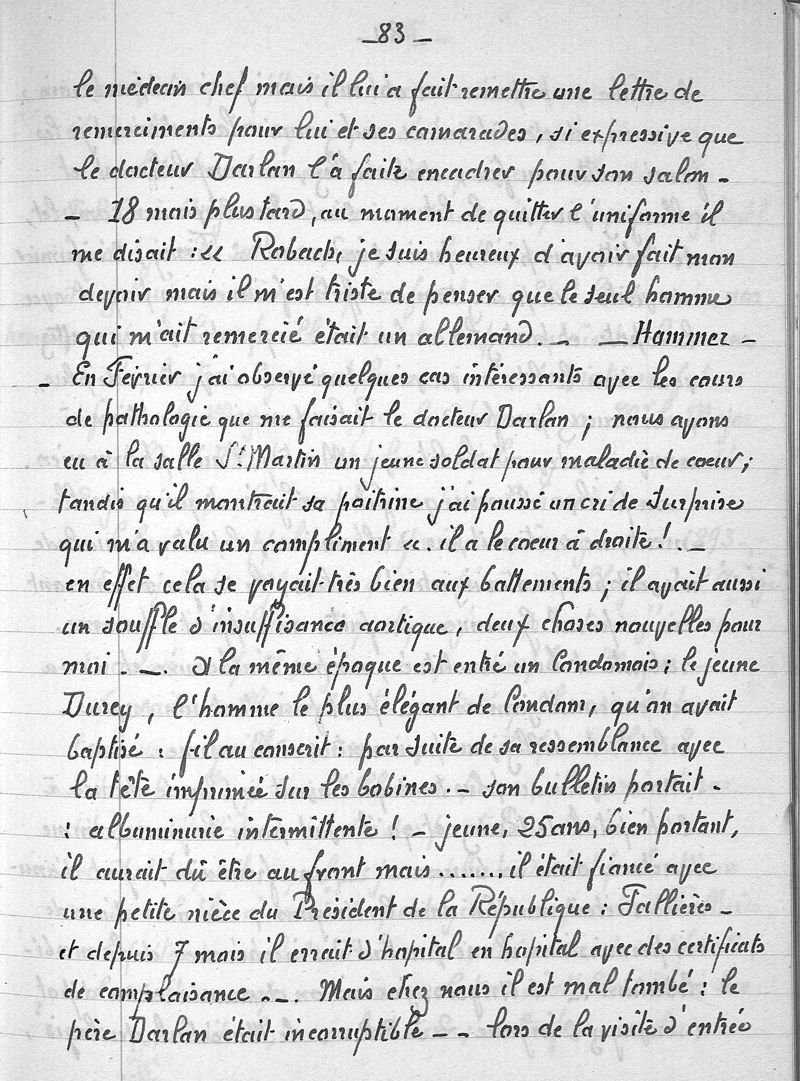 _ 83 _
le médecin chef mais il lui a fait remettre une lettre de
remerciments pour lui et ses camarades, si expressive que
le docteur Darlan l'a faite encadrer pour son salon _
_ 18 mois plus tard, au moment de quitter l'uniforme il
me disait : << Robach, je suis heureux d'avoir fait mon
devoir mais il m'est triste de penser que le seul homme
qui m'ait remercié était un allemand. _ _ Hammer _
_ En Février j'ai observé quelques cas intéressants avec les cours
de pathologie que me faisait le docteur Darlan ; nous avons
eu à la salle St Martin un jeune soldat pour maladie de coeur ;
tandis qu'il montrait sa poitrine j'ai poussé un cri de surprise
qui m'a valu un compliment <<. il a le coeur à droite ! . _
en effet cela se voyait très bien aux battements ; il avait aussi
un souffle d'insuffisance aortique, deux choses nouvelles pour
moi . _ . A la même époque est entré un Condomois ; le jeune
Durey, l'homme le plus élégant de Condom, qu'on avait
baptisé : fil au conscrit : par suite de sa ressemblance avec
la tête imprimée sur les bobines . _ son bulletin portait .
: albuminurie intermittente ! _ jeune, 25 ans, bien portant,
il aurait dû être au front mais ....... il était fiancé avec
une petite nièce du Président de la République : Fallières _
et depuis 7 mois il errait d'hopital en hopital avec des certificats
de complaisance . _ . Mais chez nous il est mal tombé : le
père Darlan était incorruptible _ _ lors de la visite d'entrée